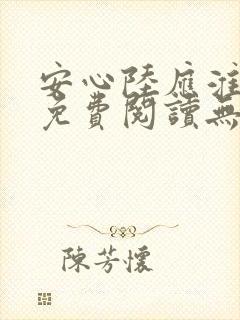 安心陸應淮
免費閱讀無
陳芳懷